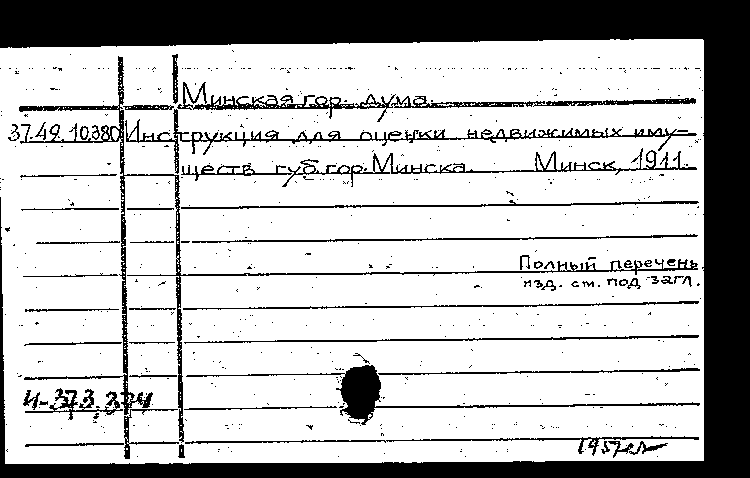 Минская гор. дума.
37.49.10.380 Инструкция для оценки недвижимых иму-
ществ губ. гор. Минска. Минск, 1911.
Полный перечень
изд. см. под загл.
И-373.324